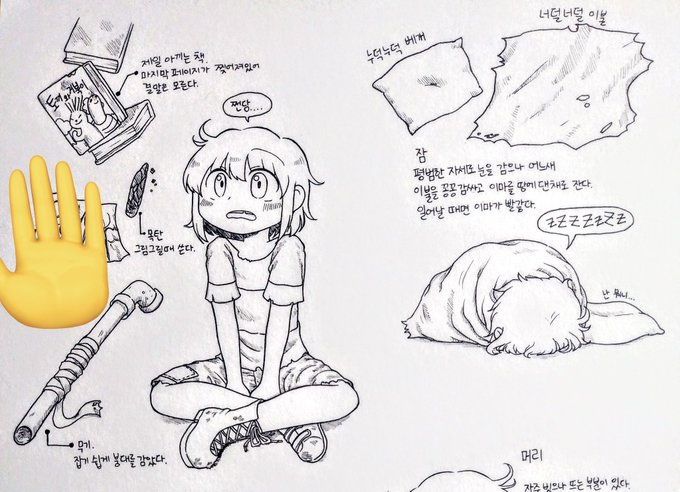 제일 아끼는 책.
마지막 페이지가 찢어져있어
결말은 모른다.
토끼와 거북이
쩐당....
목탄
그림그릴때 쓴다.
무기.
잡기 쉽게 붕대를 감았다.
누덕누덕 베개
너덜너덜 이불
잠
평범한 자세로 눈을 감으나 어느새
이불을 꽁꽁감싸고 이마를 땅에 댄채로 잔다.
일어날 때면 이마가 빨갛다.
ZZZZZZZ
난 뭐니...
머리
자주 빗으나 뜨는 부분이 있다.